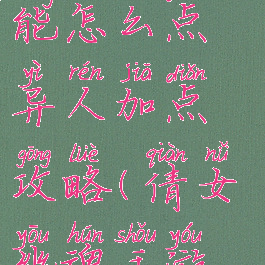 能怎么点
yì rén jiā diǎn
异人加点
gōng lüè qiàn nǚ
攻略(倩女
yōu hún shǒu yóu